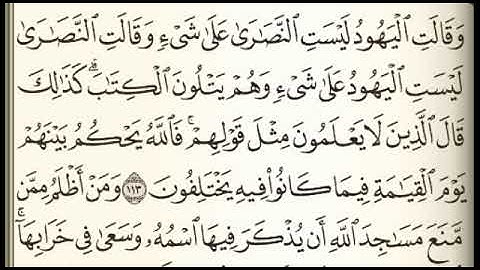 وَقَالَتِ ٱلْيَهُودُ لَيْسَتِ ٱلنَّصَٰرَىٰ عَلَىٰ شَىْءٍ وَقَالَتِ ٱلنَّصَٰرَىٰ
لَيْسَتِ ٱلْيَهُودُ عَلَىٰ شَىْءٍ وَهُمْ يَتْلُونَ ٱلْكِتَٰبَ ۗ كَذَٰلِكَ
قَالَ ٱلَّذِينَ لَا يَعْلَمُونَ مِثْلَ قَوْلِهِمْ ۚ فَٱللَّهُ يَحْكُمُ بَيْنَهُمْ
يَوْمَ ٱلْقِيَٰمَةِ فِيمَا كَانُوا۟ فِيهِ يَخْتَلِفُونَ ١١٣ وَمَنْ أَظْلَمُ مِمَّن
مَّنَعَ مَسَٰجِدَ ٱللَّهِ أَن يُذْكَرَ فِيهَا ٱسْمُهُۥ وَسَعَىٰ فِى خَرَابِهَآ ۚ